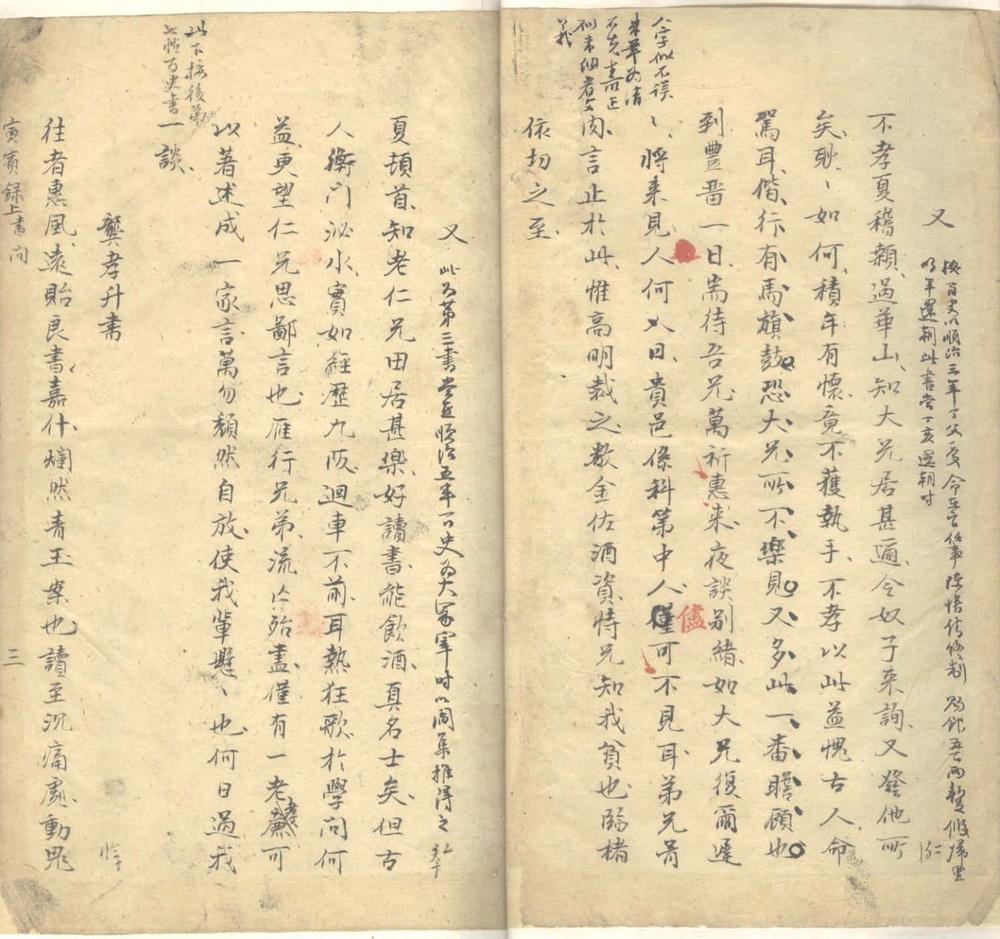 又
按百史以順治三年丁父憂命在官任事陳情終制賜銀五百兩暫假歸里
明年還朝此書當丁亥還朝時
不孝夏稽顙過華山知大兄居甚邇令奴子来詢又發他所
矣耿、如何積年有懷竟不獲執手不孝以此益愧古人命
駕耳偕行有馬旗鼓恐大兄所不樂見又多此一番瞻顧也
到豐啚一日耑待吾兄萬祈惠来夜談别緒如大兄復爾遲
、將来見人何以日貴邑係科第中人僅可不見耳弟兄骨
肉言止於此惟高明裁之数金佐酒資恃兄知我貧也臨楮
依切之至
人字似不誤
儘
義
又
此為第三書當在順治五年百史為大冢宰時以閣集推得之
夏頓首知老仁兄田居甚樂好讀書能飲酒真名士矣但古
人衡门泌水實如經歷九阪迴車不前耳熱狂歌於學問何
益更望仁兄思鄙言也雁行兄弟流亡殆盡僅有一老廉可
孝
以著述成一家言萬勿頹然自放使我輩懸、也何日過我
一談
此下接後第
七帖百史書
龔孝升書
往者惠風遠貽良書嘉什爛然青玉案也讀至沉痛處動鬼
寅賓録上書问
三